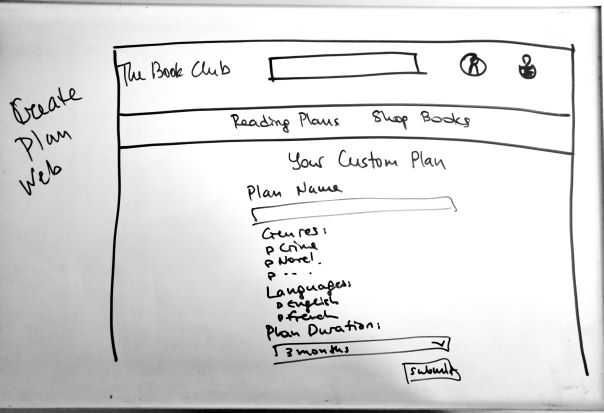 Create
Plan
Web
The Book Club
Reading Plans Shop Books
Your Custom Plan
Plan Name
Genres:
Crime
Novel.
...
Languages:
English
French
Plan Duration:
3 months
submit